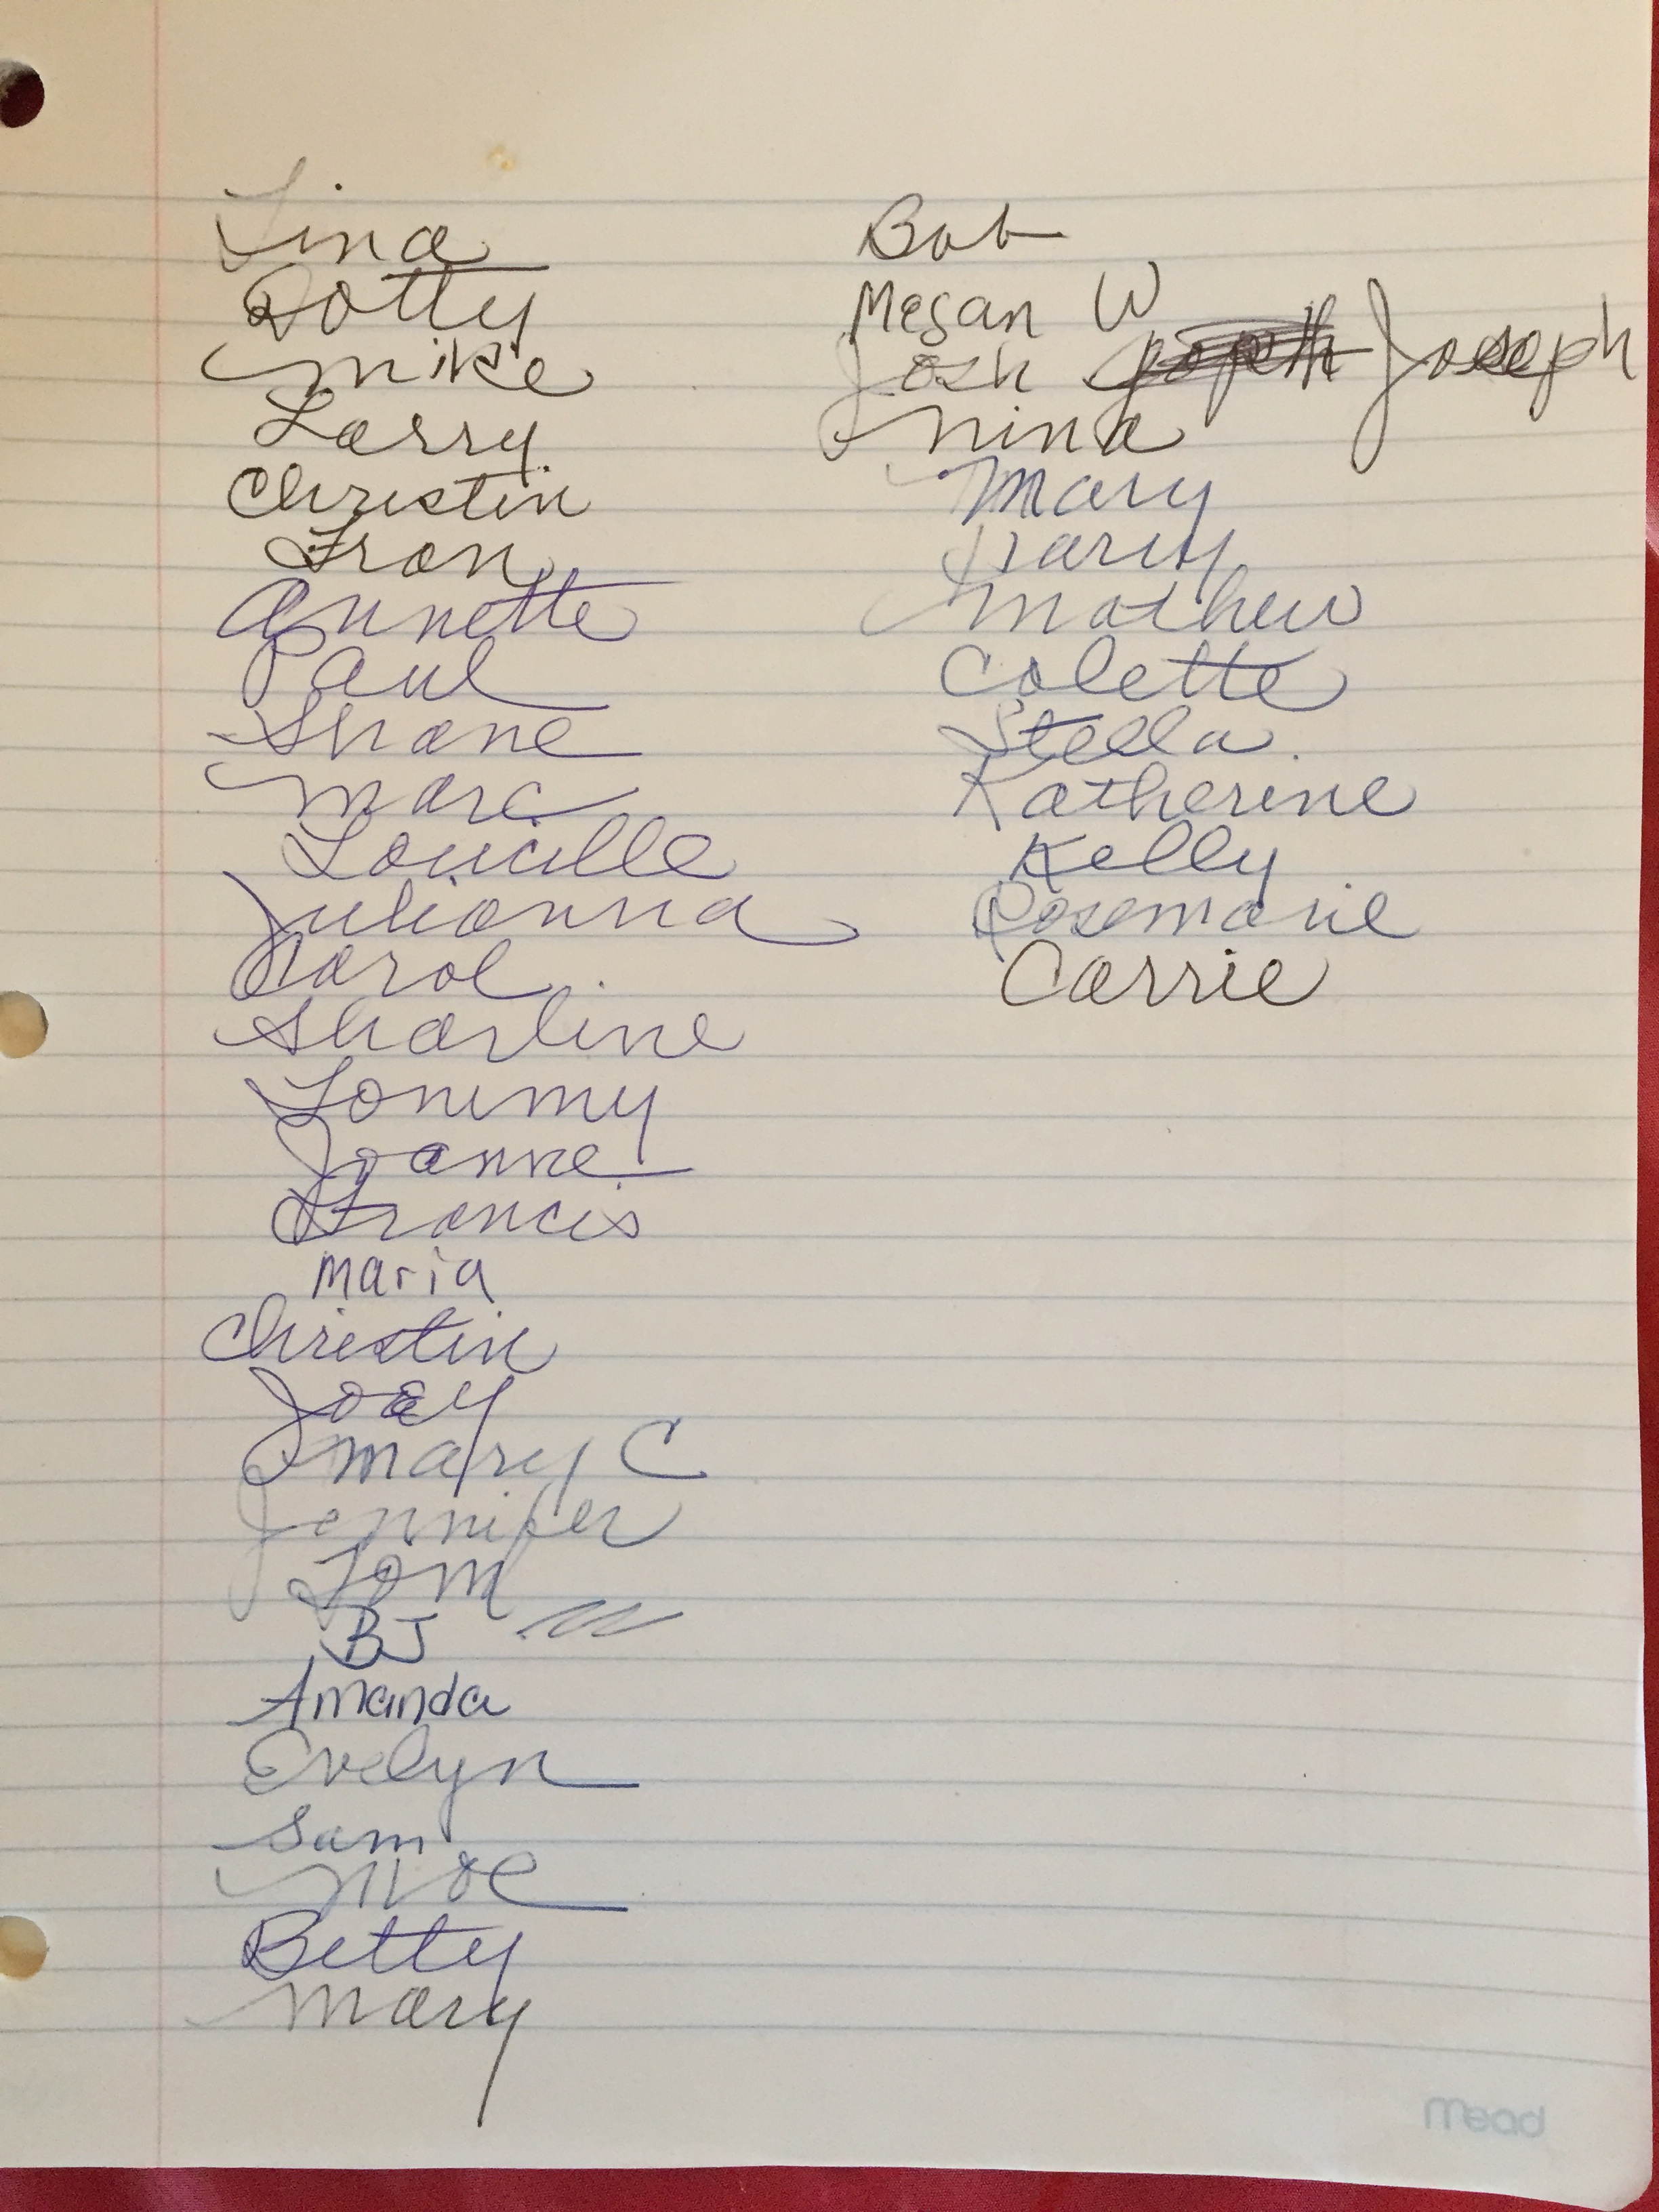 Tina
Dotty
Mike
Larry
Christin
Fran
Annette
Paul
Shane
Marc
Loucille
Julianna
Carol
Sharline
Tommy
Joanne
Francis
Maria
Christin
Joey
Mary C
Jennifer
Tom
BJ
Amanda
Evelyn
Sam
Moe
Betty
Mary
Bob
Megan W
Josh Joseph
Nina
Mary
Harry
Mathew
Colette
Stella
Katherine
Kelly
Rosemarie
Carrie
Mead